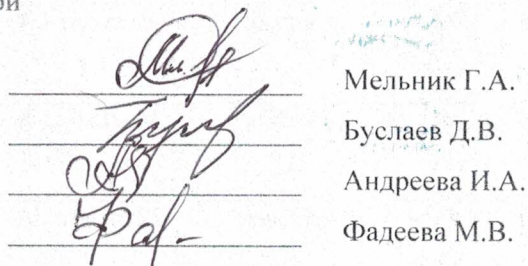 ри
Мельник Г.А.
Буслаев Д.В.
Андреева И.А.
Фадеева М.В.